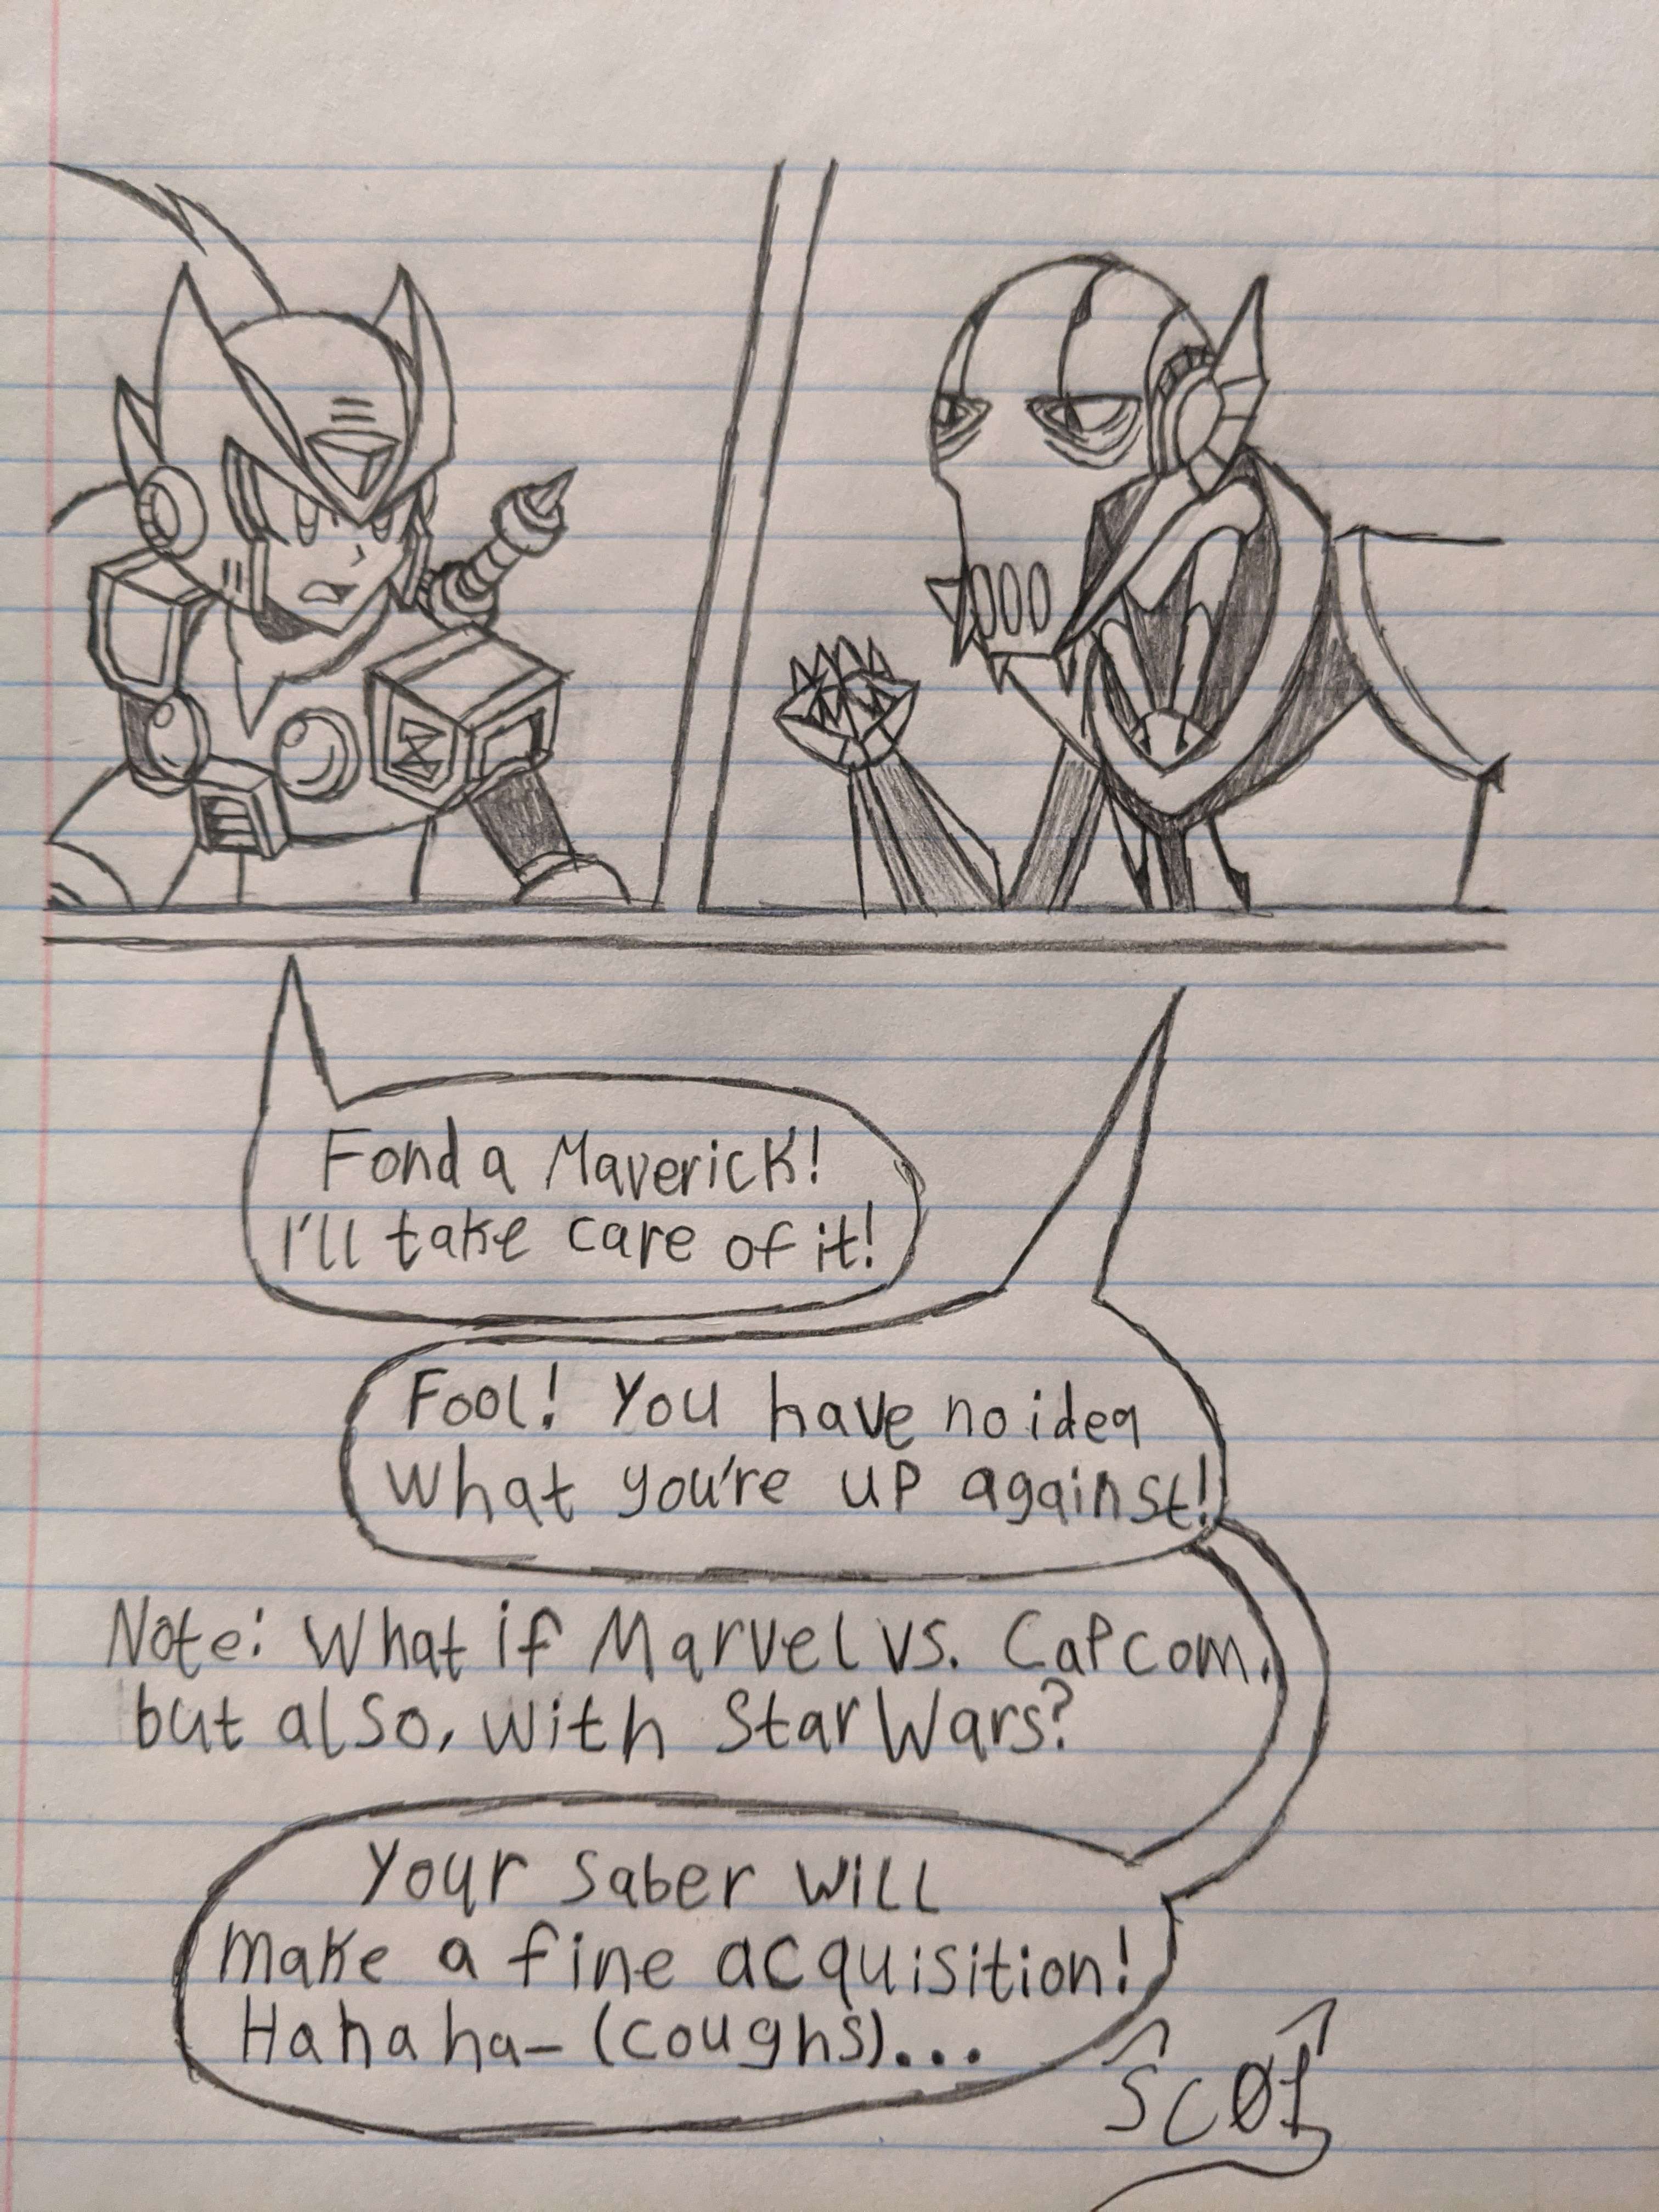 Fond a Maverick!
I'll take care of it!
Fool! You have no idea
What you're up against!
Note: What if Marvel vs. Capcom,
but also, with Star Wars?
Your saber will
make a fine acquisition!
Hahaha- (coughs)...
SC01